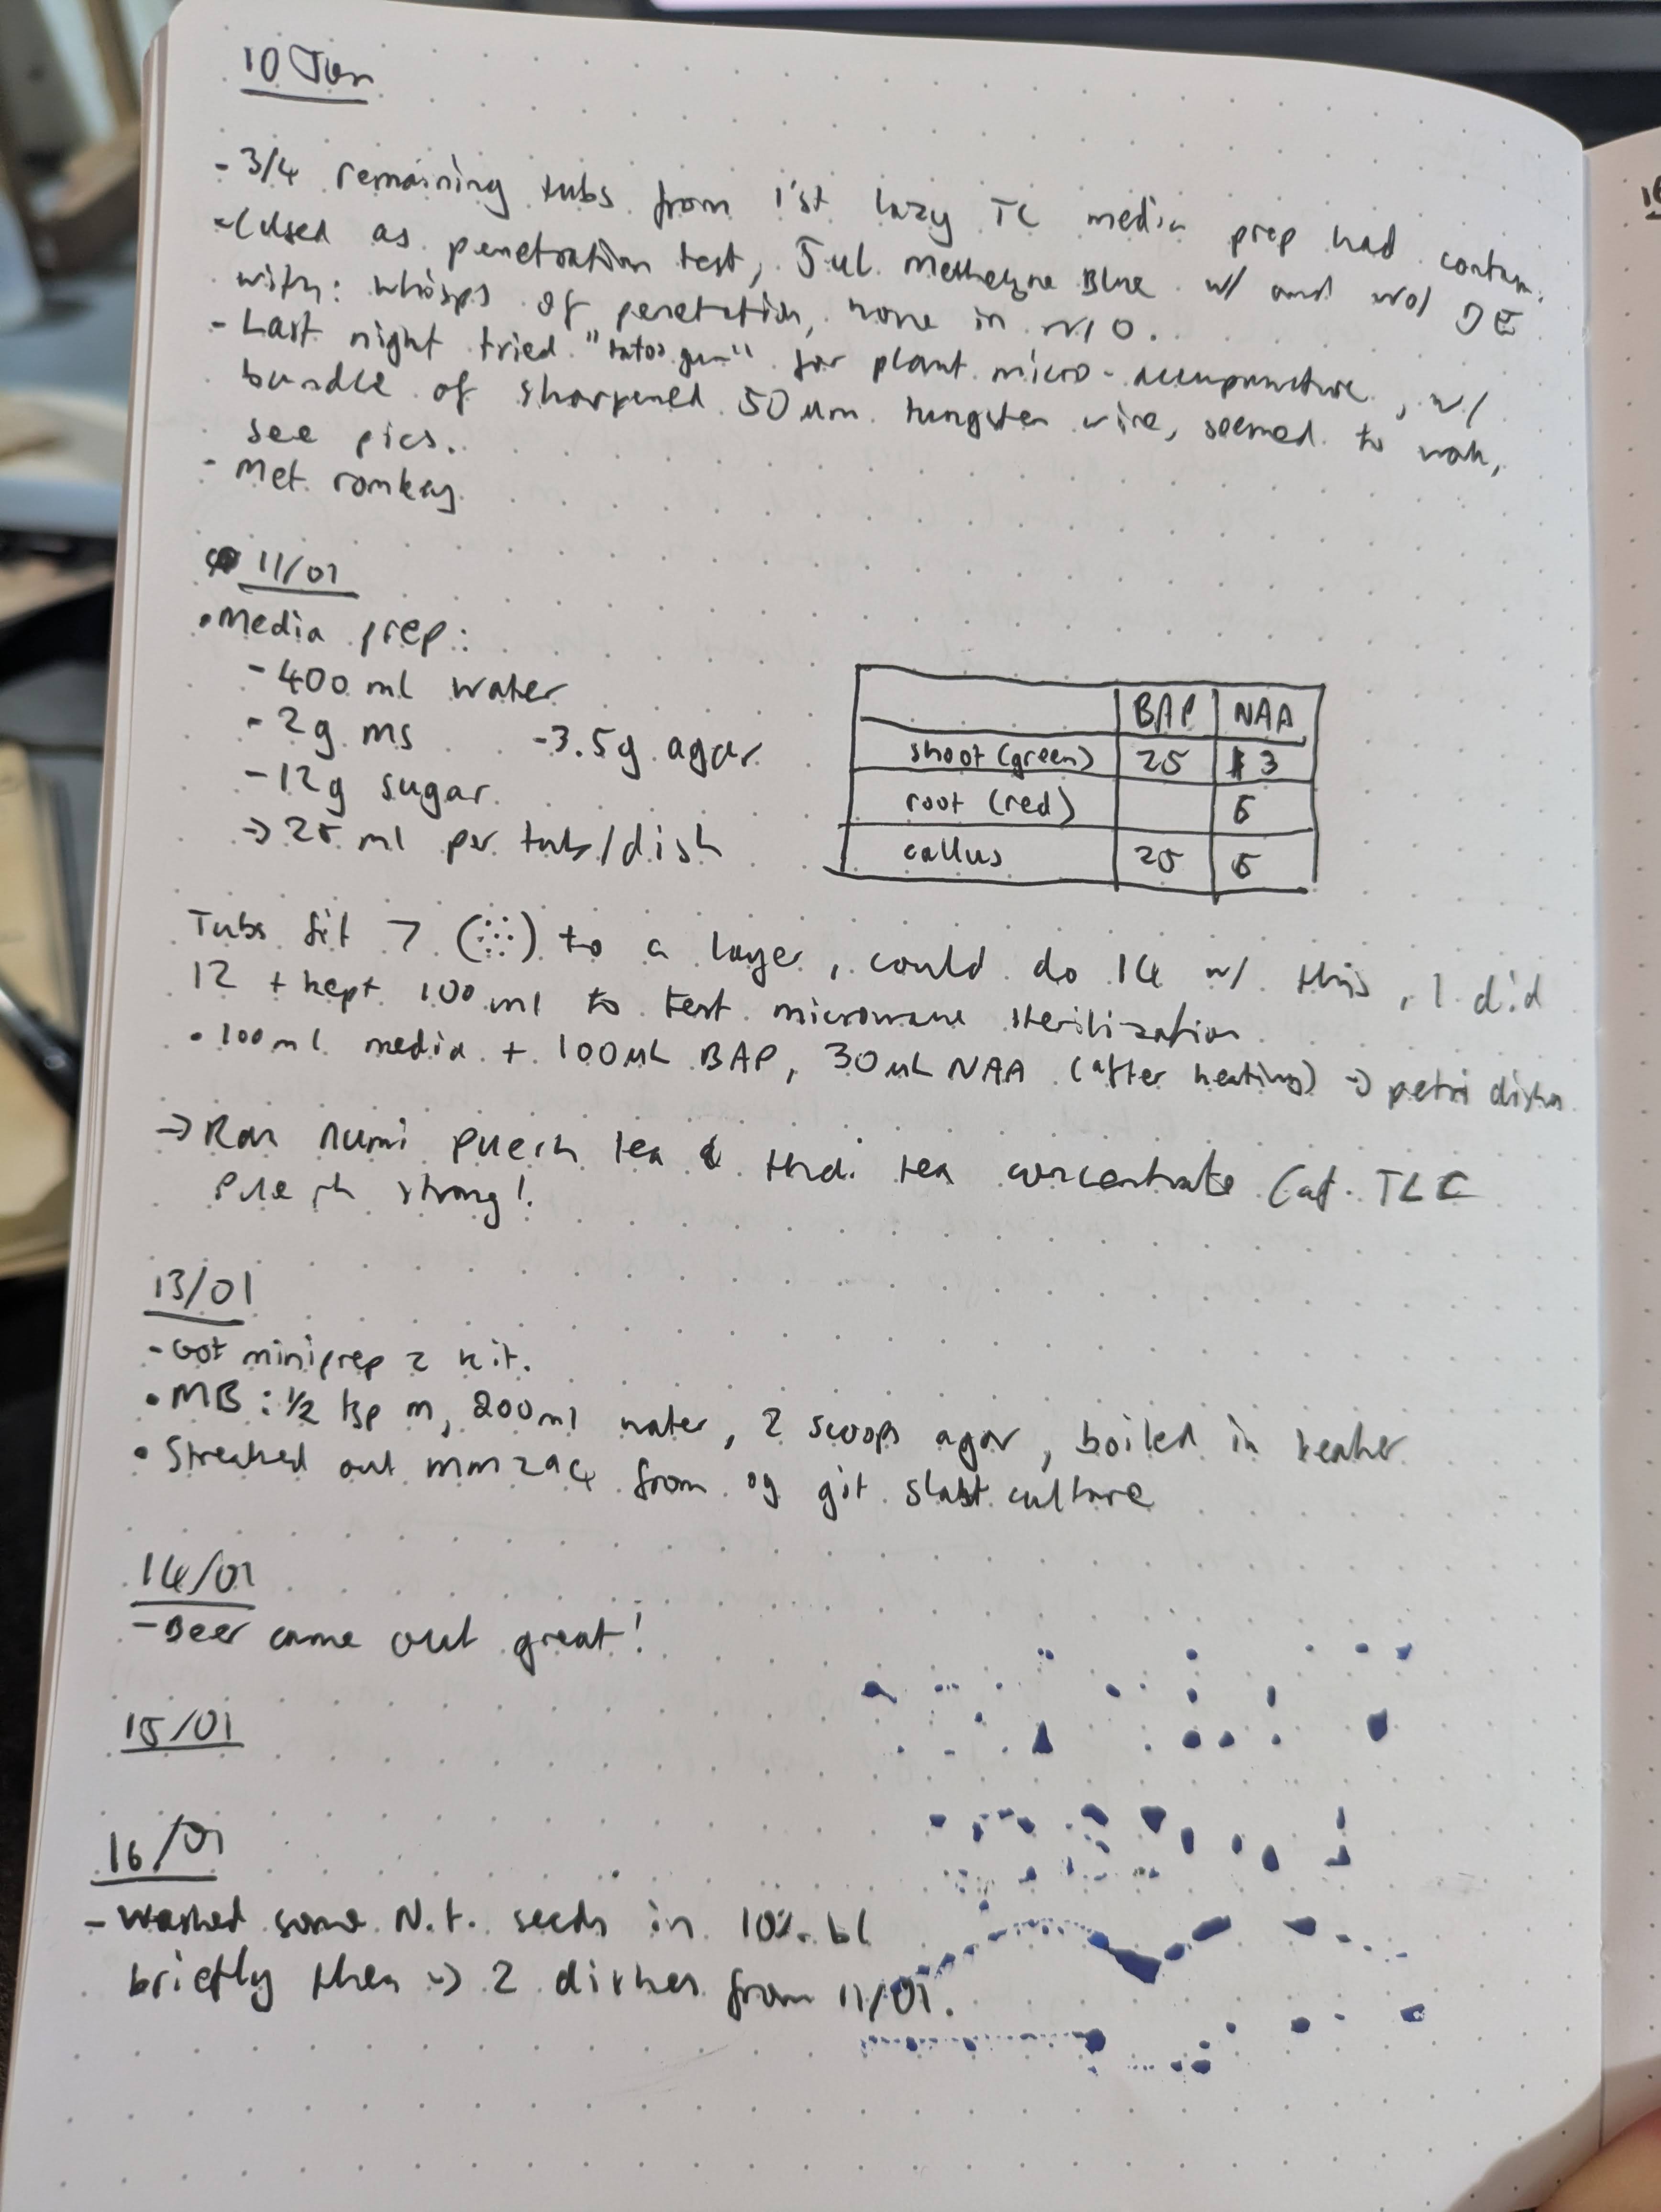 10 Jan
- 3/4 remaining tubs from 1'st lazy TC media prep had contam.
- Used as penetration test, 5ul. Methelyne Blue w/ and w/o DE
with: whisps of penetration, none in w/o.
- Last night tried "tatoo gun" for plant micro-accupuncture, w/
bundle of sharpened 50um tungsten wire, seemed to work,
see pics.
- Met romkey.
11/01
• Media prep:
- 400 ml water
- 2g ms - 3.5g agar
- 12g sugar
→ 25 ml per tub/dish
BAP NAA
shoot (green) 25 3
root (red) 5
callus 25 5
Tubs fit 7 to a layer, could do 14 w/ this, I did
12 + kept 100 ml to test microwave sterilization
• 100ml media + 100uL BAP, 30uL NAA (after heating) → petri dishes
→ Ran numi puerh tea & thai tea concentrate TLC
Puerh strong!
13/01
- Got miniprep 2 kit.
• MB: 1/2 tsp m, 200ml water, 2 scoops agar, boiled in beaker
• Streaked out mm294 from og git stab culture
14/01
- Beer came out great!
15/01
16/01
- Washed some N.t. seeds in 10% bl
briefly then → 2 dishes from 11/01.
16